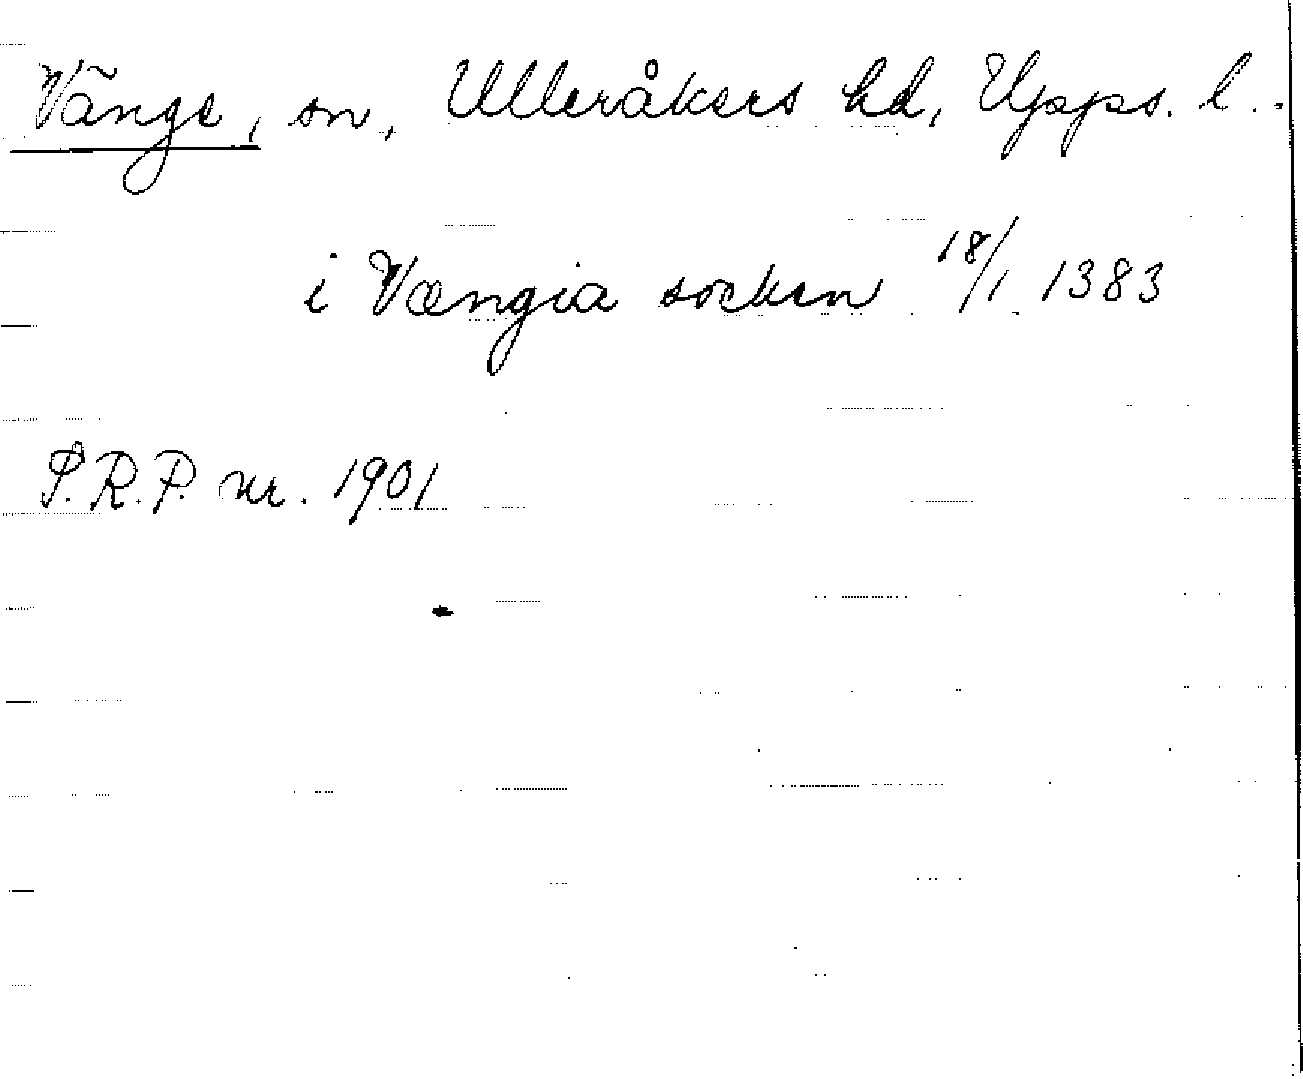 Vänge, sn, Ulleråkers hd, Upps. l.
i Vængia socken 18/1 1383
S.R.P. nr. 1901